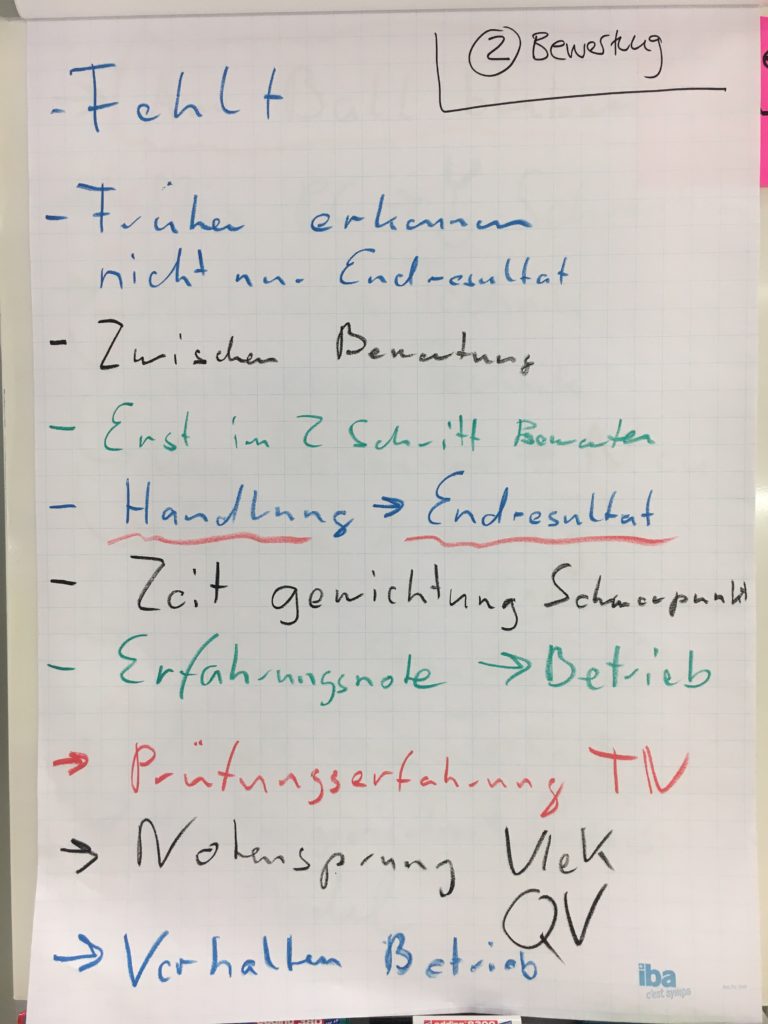 ② Bewertung
- Fehlt
- Früher erkennen
nicht nur Endresultat
- Zwischen Bewertung
- Erst im 2 Schritt Bewerten
- Handlung → Endresultat
- Zeit gewichtung Schwerpunkt
- Erfahrungsnote → Betrieb
→ Prüfungserfahrung TN
→ Notensprung ÜK
QV
→ Verhalten Betrieb
iba
c'est sympa